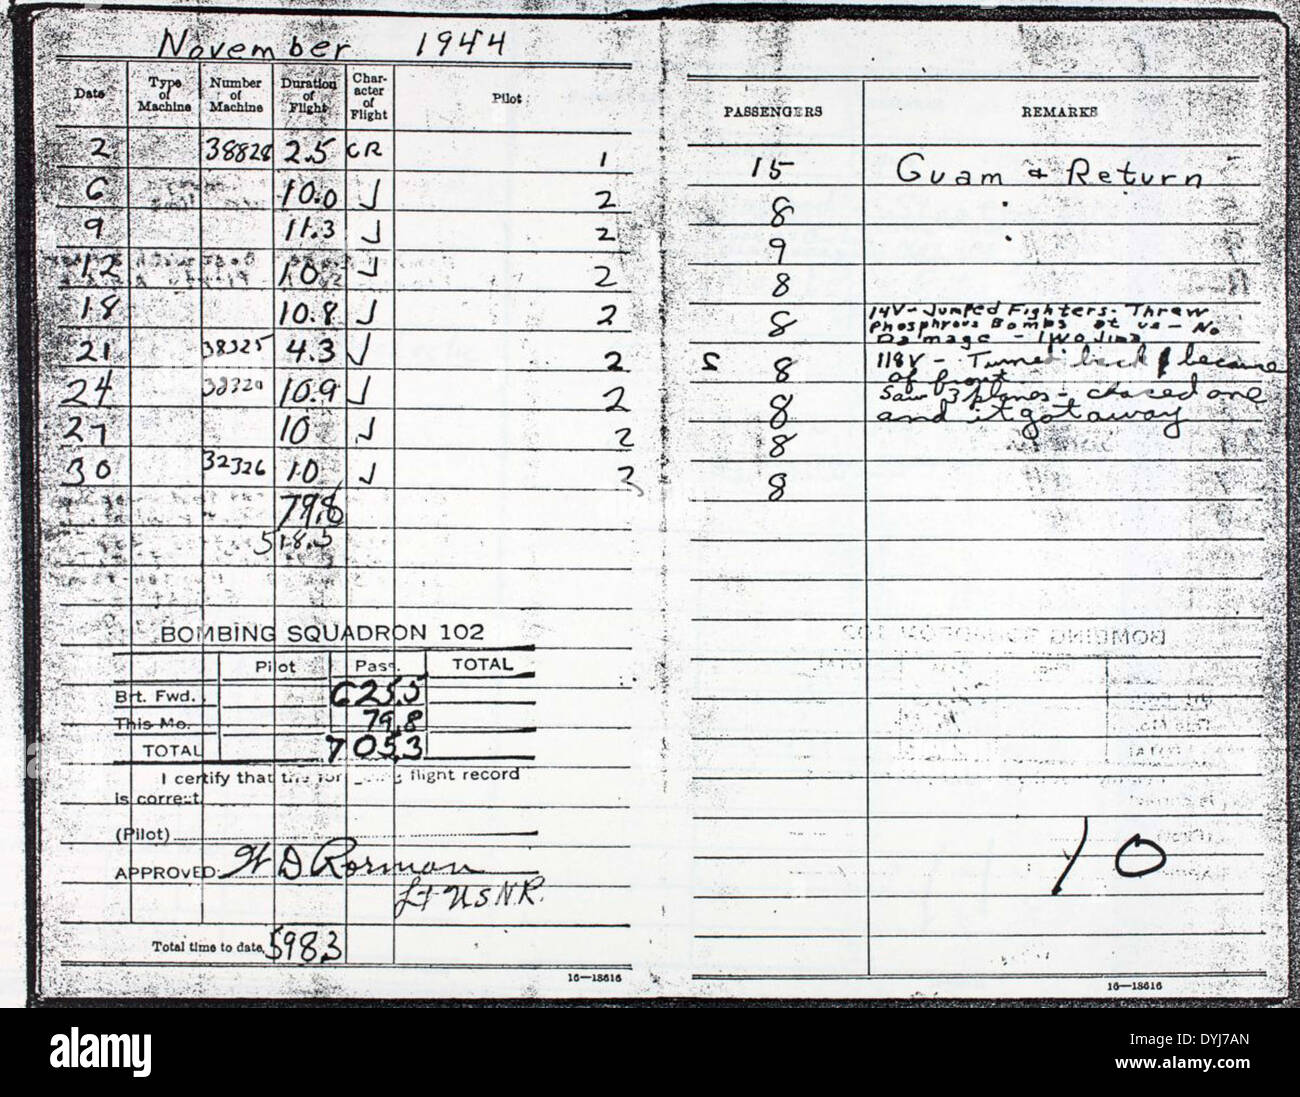 November 1944
Date Type of Machine Number of Machine Duration of Flight Char-acter of Flight Pilot PASSENGERS REMARKS
2 38828 2.5 CR 1 15 Guam & Return
6 10.0 ✓ 2 8
9 11.3 ✓ 2 9
12 10 ✓ 2 8
18 10.8 ✓ 2 8 14V - Jumped Fighters. Threw
Phosphrous Bombs at us - No
Damage - IWO Jima
21 38325 4.3 ✓ 2 8 118V - Turned back because
of front
24 38320 10.9 ✓ 2 8 Saw 3 planes - chased one
and it got away
27 10 ✓ 2 8
30 32326 10 ✓ 3 8
79.8
518.5
BOMBING SQUADRON 102
Pilot Pass. TOTAL
Brt. Fwd. 625.5
This Mo. 79.8
TOTAL 705.3
I certify that the flight record
is correct.
(Pilot)
APPROVED: H D Rorman
Lt USNR.
Total time to date, 598.3
16—18616
10
16—18616
alamy
Image ID: DYJ7AN
www.alamy.com